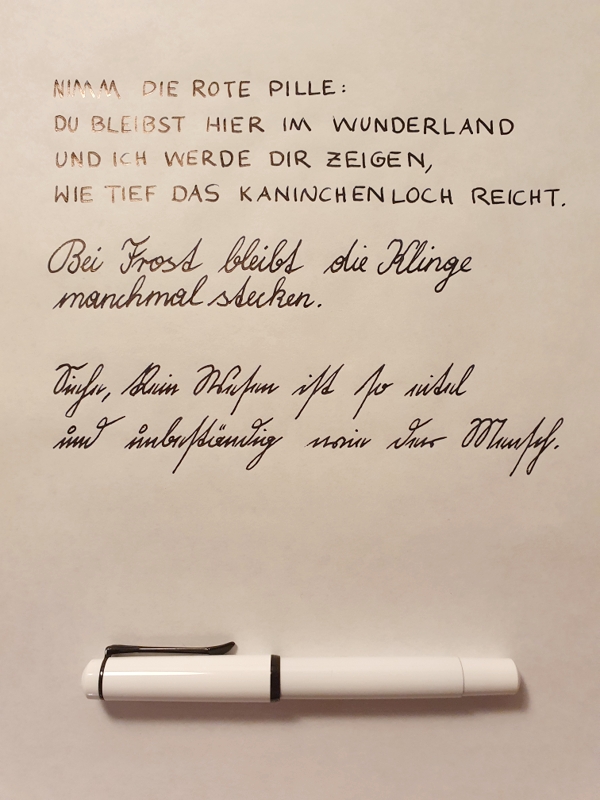 NIMM DIE ROTE PILLE:
DU BLEIBST HIER IM WUNDERLAND
UND ICH WERDE DIR ZEIGEN,
WIE TIEF DAS KANINCHENLOCH REICHT.
Bei Frost bleibt die Klinge
manchmal stecken.
Siehe, kein Wesen ist so eitel
und unbeständig wie der Mensch.